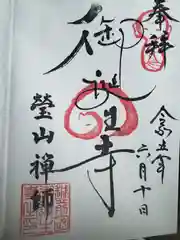 奉拝
令和五年
六月十日
御誕生寺
瑩山禅師